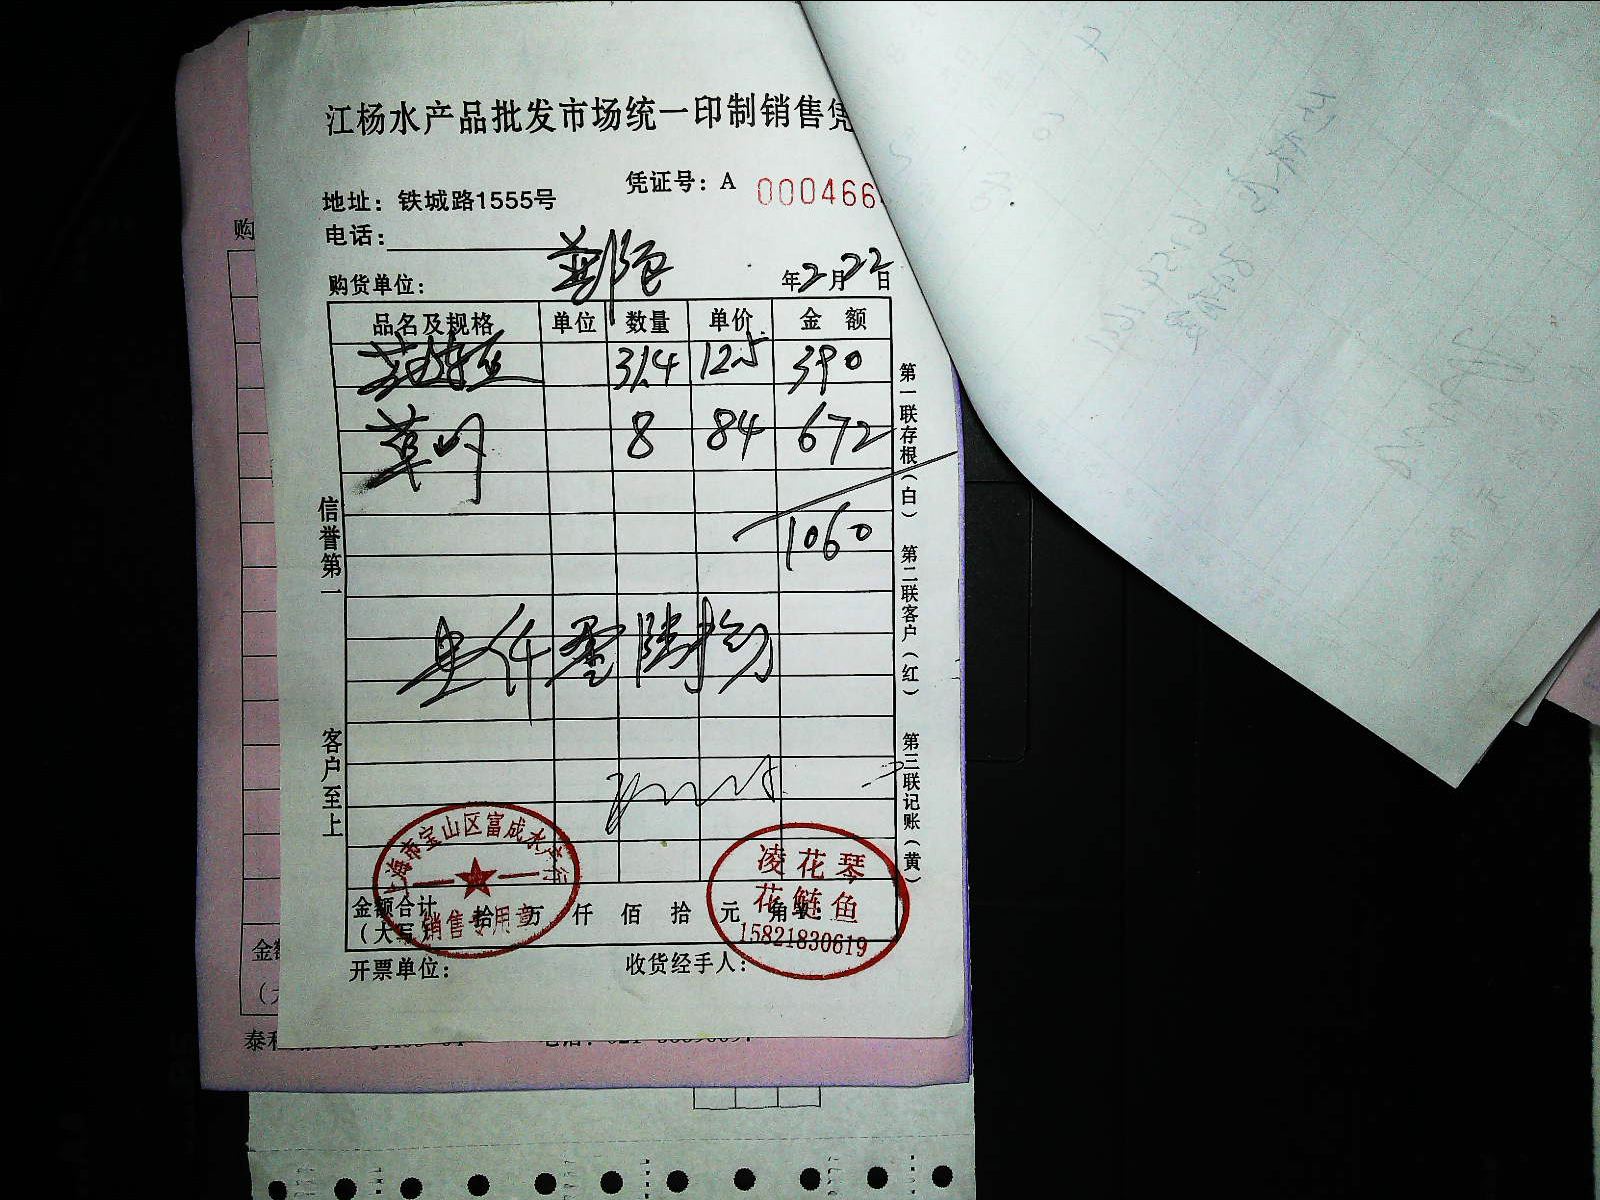 江杨水产品批发市场统一印制销售凭
凭证号：A 000466
地址：铁城路1555号
电话：
购货单位： 年2月22日
品名及规格 单位 数量 单价 金额
31.4 12.5 390
草 8 84 672
1060
壹仟零陆拾
信誉第一
客户至上
第一联存根（白）
第二联客户（红）
第三联记账（黄）
上海市宝山区富成水产行
销售专用章
凌花琴
花鲢鱼
15821830619
金额合计 拾 万 仟 佰 拾 元 角
（大写）
开票单位：
收货经手人：
购